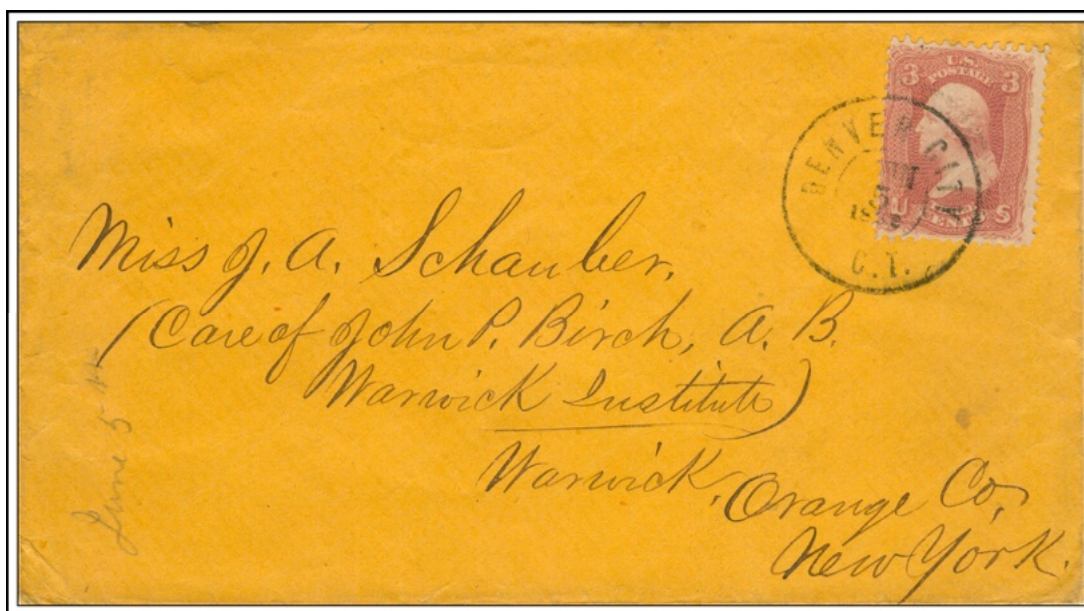 3 3
U.S.
POSTAGE
U CENTS S
DENVER CITY
JUN
C.T.
Miss J. A. Schauber,
(Care of John P. Birch, A. B.
Warwick Institute)
Warwick, Orange Co,
New York.
June 5